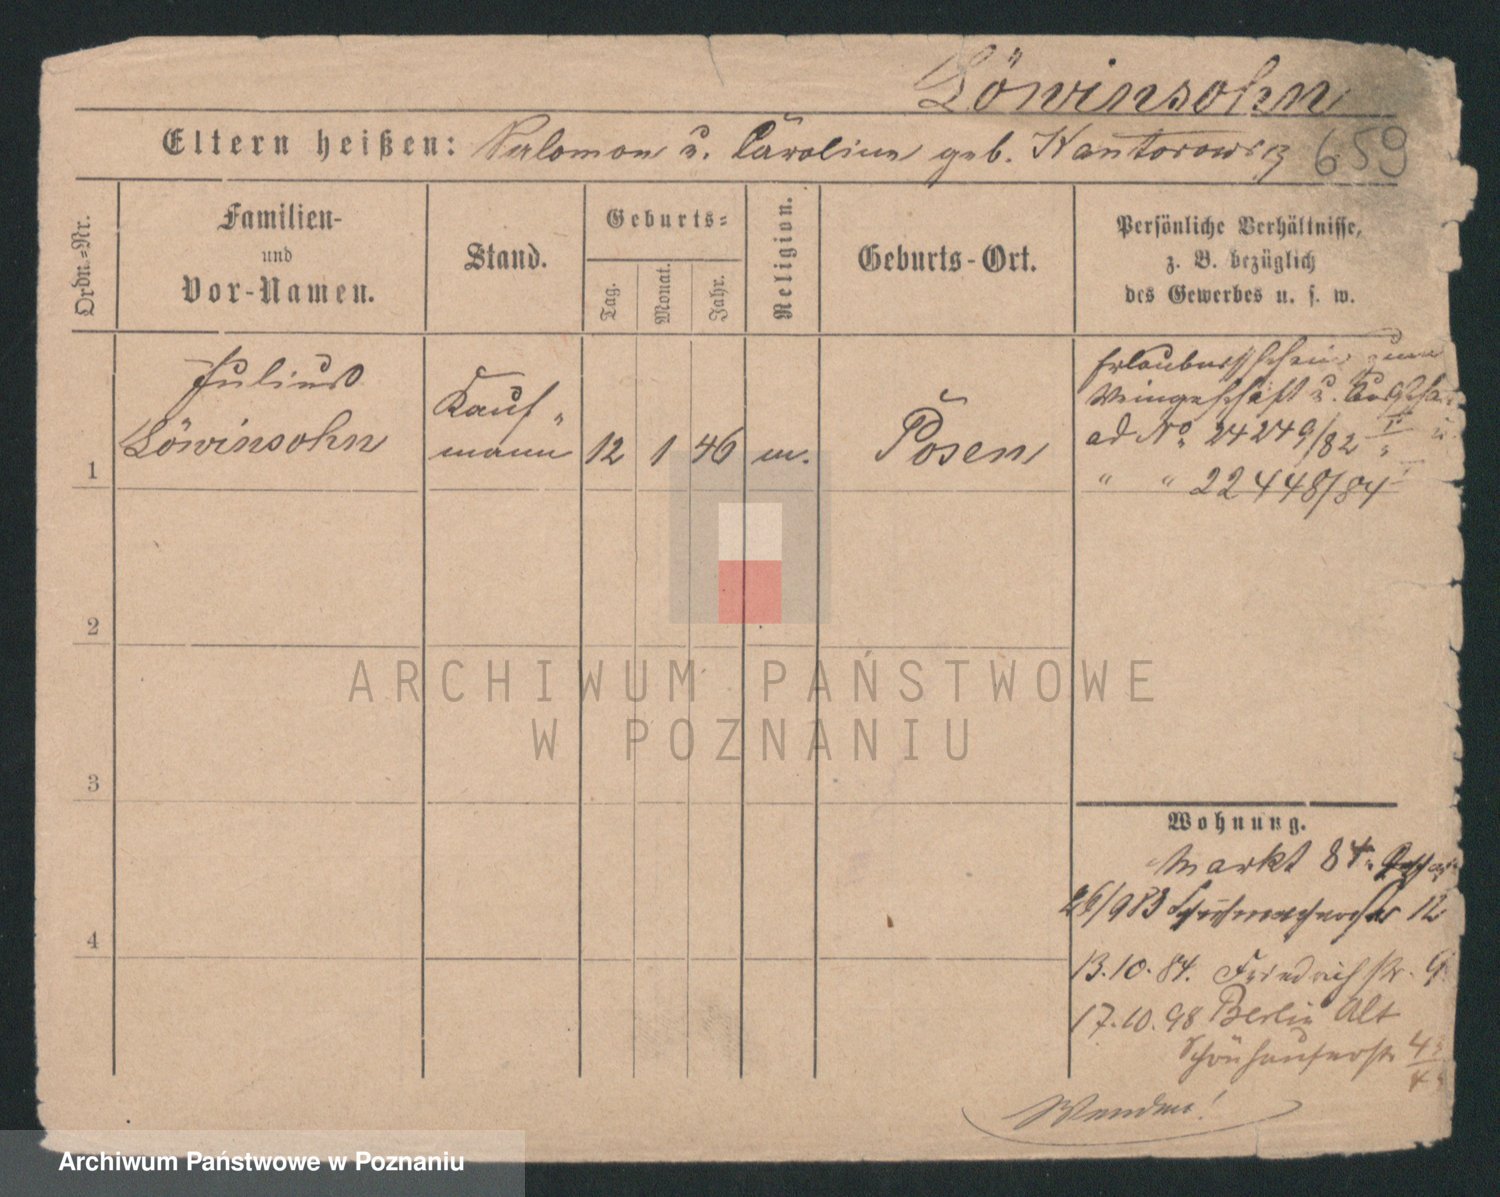 Löwinsohn
Eltern heißen: Salomon u. Caroline geb. Kantorowicz 659
Ordn.-Nr.
Familien-
und
Vor-Namen.
Stand.
Geburts-
Tag.
Monat.
Jahr.
Religion.
Geburts-Ort.
Persönliche Verhältnisse,
z. B. bezüglich
des Gewerbes u. s. w.
Julius
Löwinsohn
Kauf-
mann
1
12 1 46 m. Posen
Erlaubnißschein zum
Weingeschäft u.
ad No 24249/82
" " 22448/84
2
3
4
Wohnung.
Markt 84.
26/9 83 Schuhmacherstr 12
13.10.84. Friedrichstr.
17.10.98 Berlin Alt
Schönhauserstr
Wenden!
ARCHIWUM PAŃSTWOWE
W POZNANIU
Archiwum Państwowe w Poznaniu